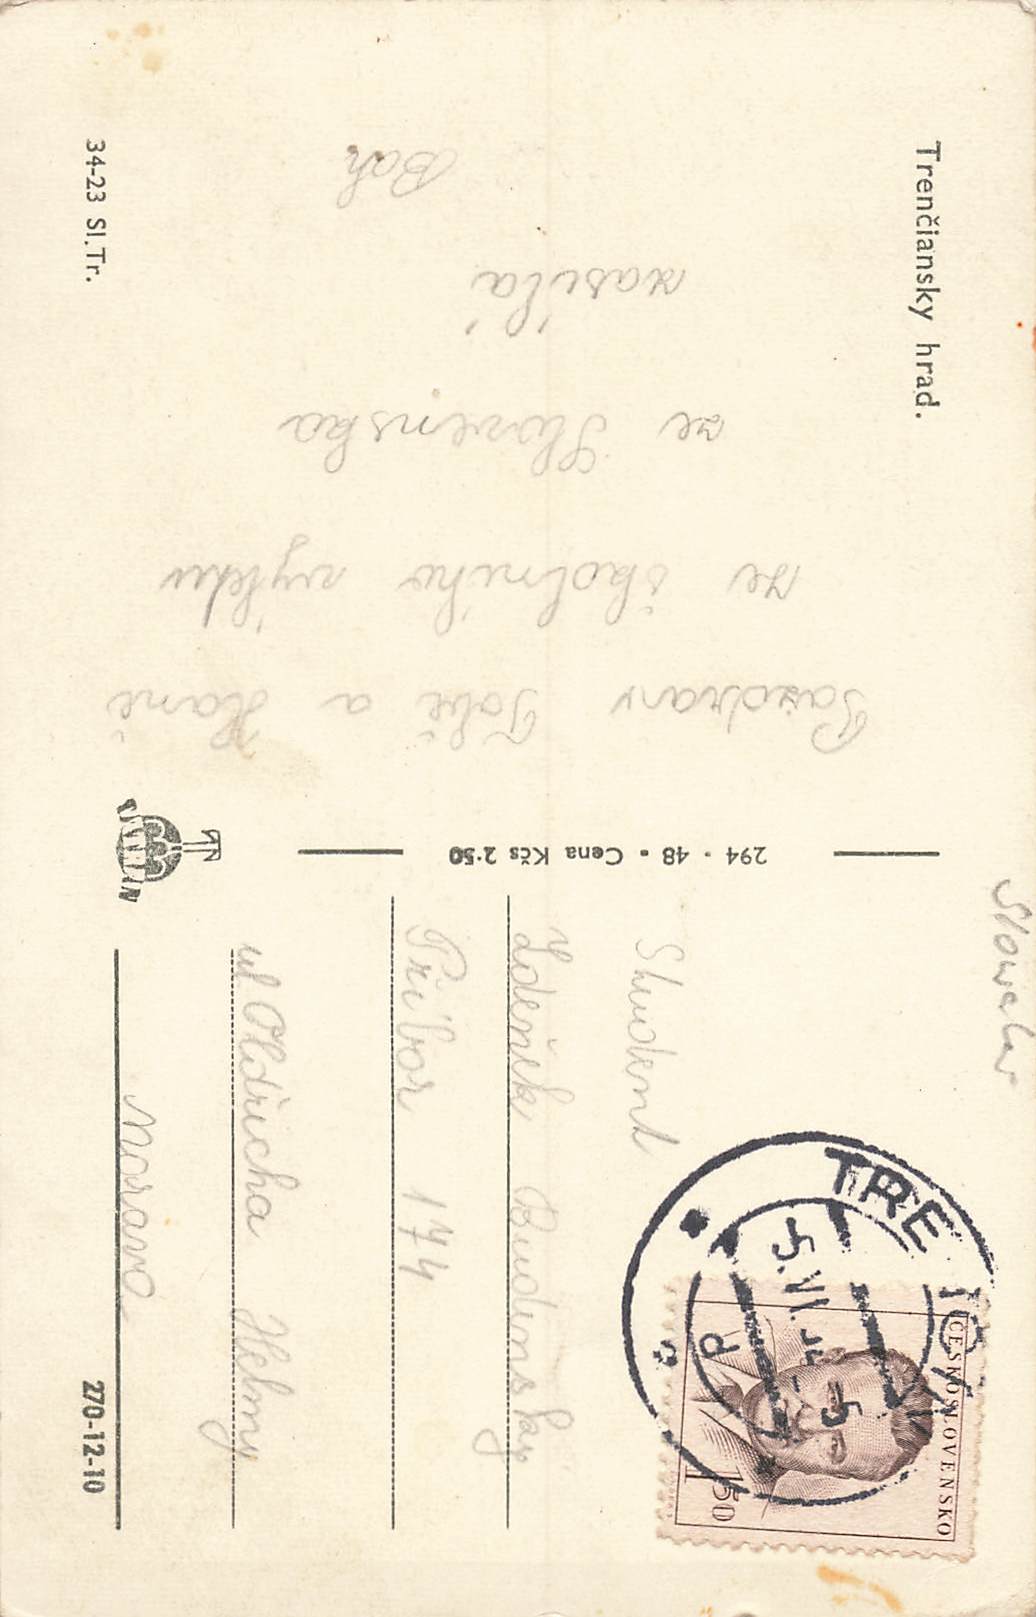 Trenčiansky hrad.
Pozdrav Tobě a Haně
ze školního výletu
ze Slovenska
zasílá
34-23 Sl.Tr.
294 - 48 - Cena Kčs 2·50
Slowakei
Student
Zdeněk Budínský
Příbor 174
ul Oldřicha Helmy
Morava
270-12-10
TRE
5.VI.
ČESKOSLOVENSKO
1 50